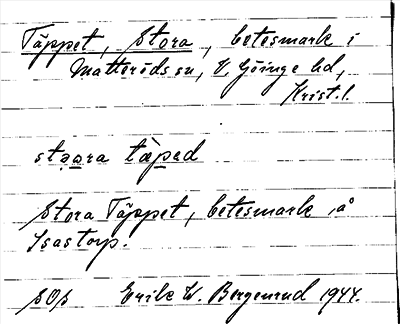 Täppet, Stora, betesmark i
Matteröds sn, V. Göinge hd,
Krist. l.
stǝɑra tæ̀pǝd
Stora Täppet, betesmark å
Isastorp.
SOs Erik W. Bergenrud 1944.